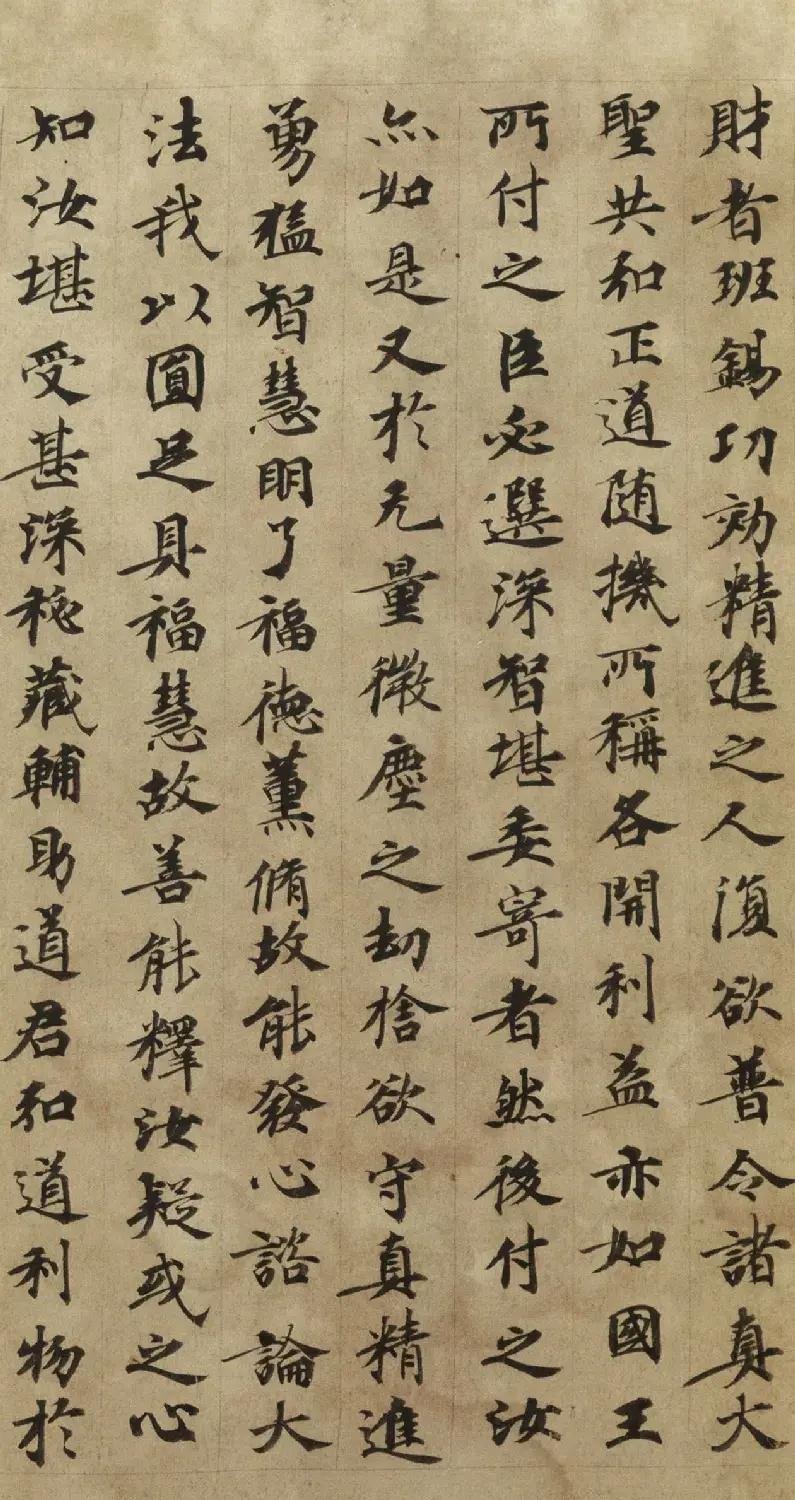 財者班錫功効精進之人復欲普令諸真大
聖共知正道随機所稱各開利益亦如國王
所付之臣必選深智堪委寄者然後付之汝
亦如是又於无量微塵之劫捨欲守真精進
勇猛智慧明了福德薰脩故能發心諮論大
法我以圓足具福慧故善能釋汝疑或之心
知汝堪受甚深秘藏輔助道君和道利物於